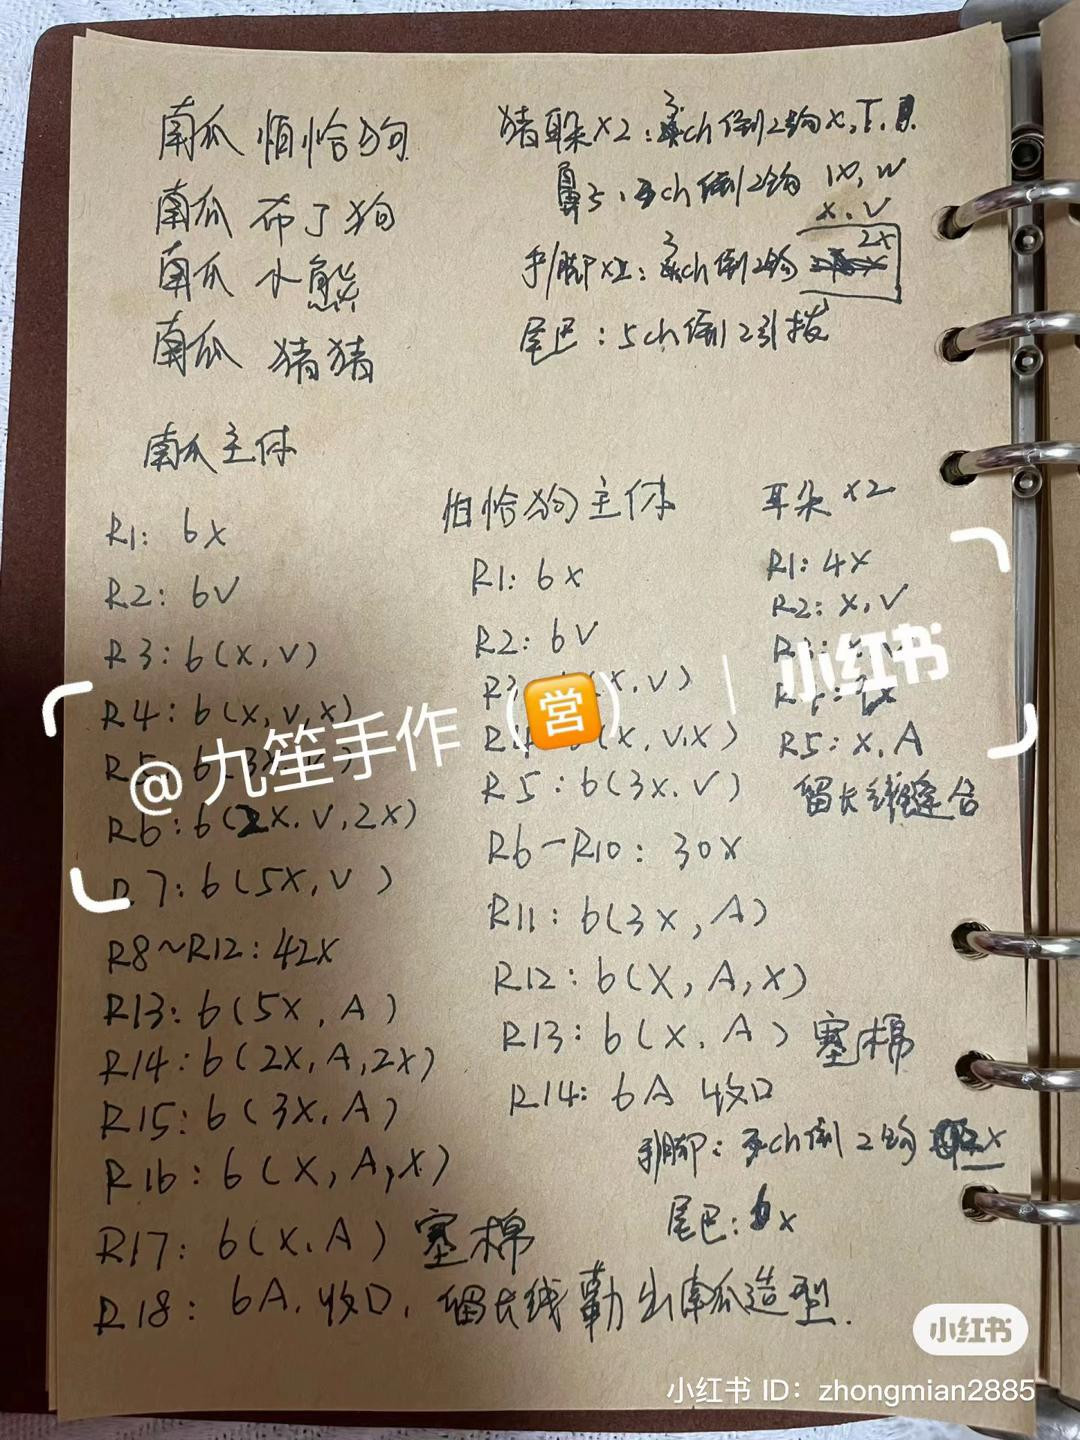 南瓜 怕恰狗
南瓜 布丁狗
南瓜 小熊
南瓜 猪猪
猪耳朵x2: 3ch 倒2钩x,T,
鼻子: ch 倒2钩 1x, W
x, V
手/脚 x2: 3ch 倒2钩 2x
尾巴: 5ch倒2引拔
南瓜主体
R1: 6x
R2: 6V
R3: 6(x, V)
R4: 6(x, V, x)
R5: 6(3x
R6: 6(2x, V, 2x)
R7: 6(5x, V)
R8~R12: 42x
R13: 6(5x, A)
R14: 6(2x, A, 2x)
R15: 6(3x, A)
R16: 6(x, A, x)
R17: 6(x, A) 塞棉
R18: 6A, 收口, 留长线勒出南瓜造型.
怕恰狗主体
R1: 6x
R2: 6V
R3 (x, V)
R4: 6(x, V, x)
R5: 6(3x, V)
R6-R10: 30x
R11: 6(3x, A)
R12: 6(x, A, x)
R13: 6(x, A) 塞棉
R14: 6A 收口
手/脚: ch倒2钩 2x
尾巴: x
耳朵x2
R1: 4x
R2: x, V
R5: x, A
留长线缝合
@九笙手作（営）｜小红书
小红书
小红书 ID：zhongmian2885